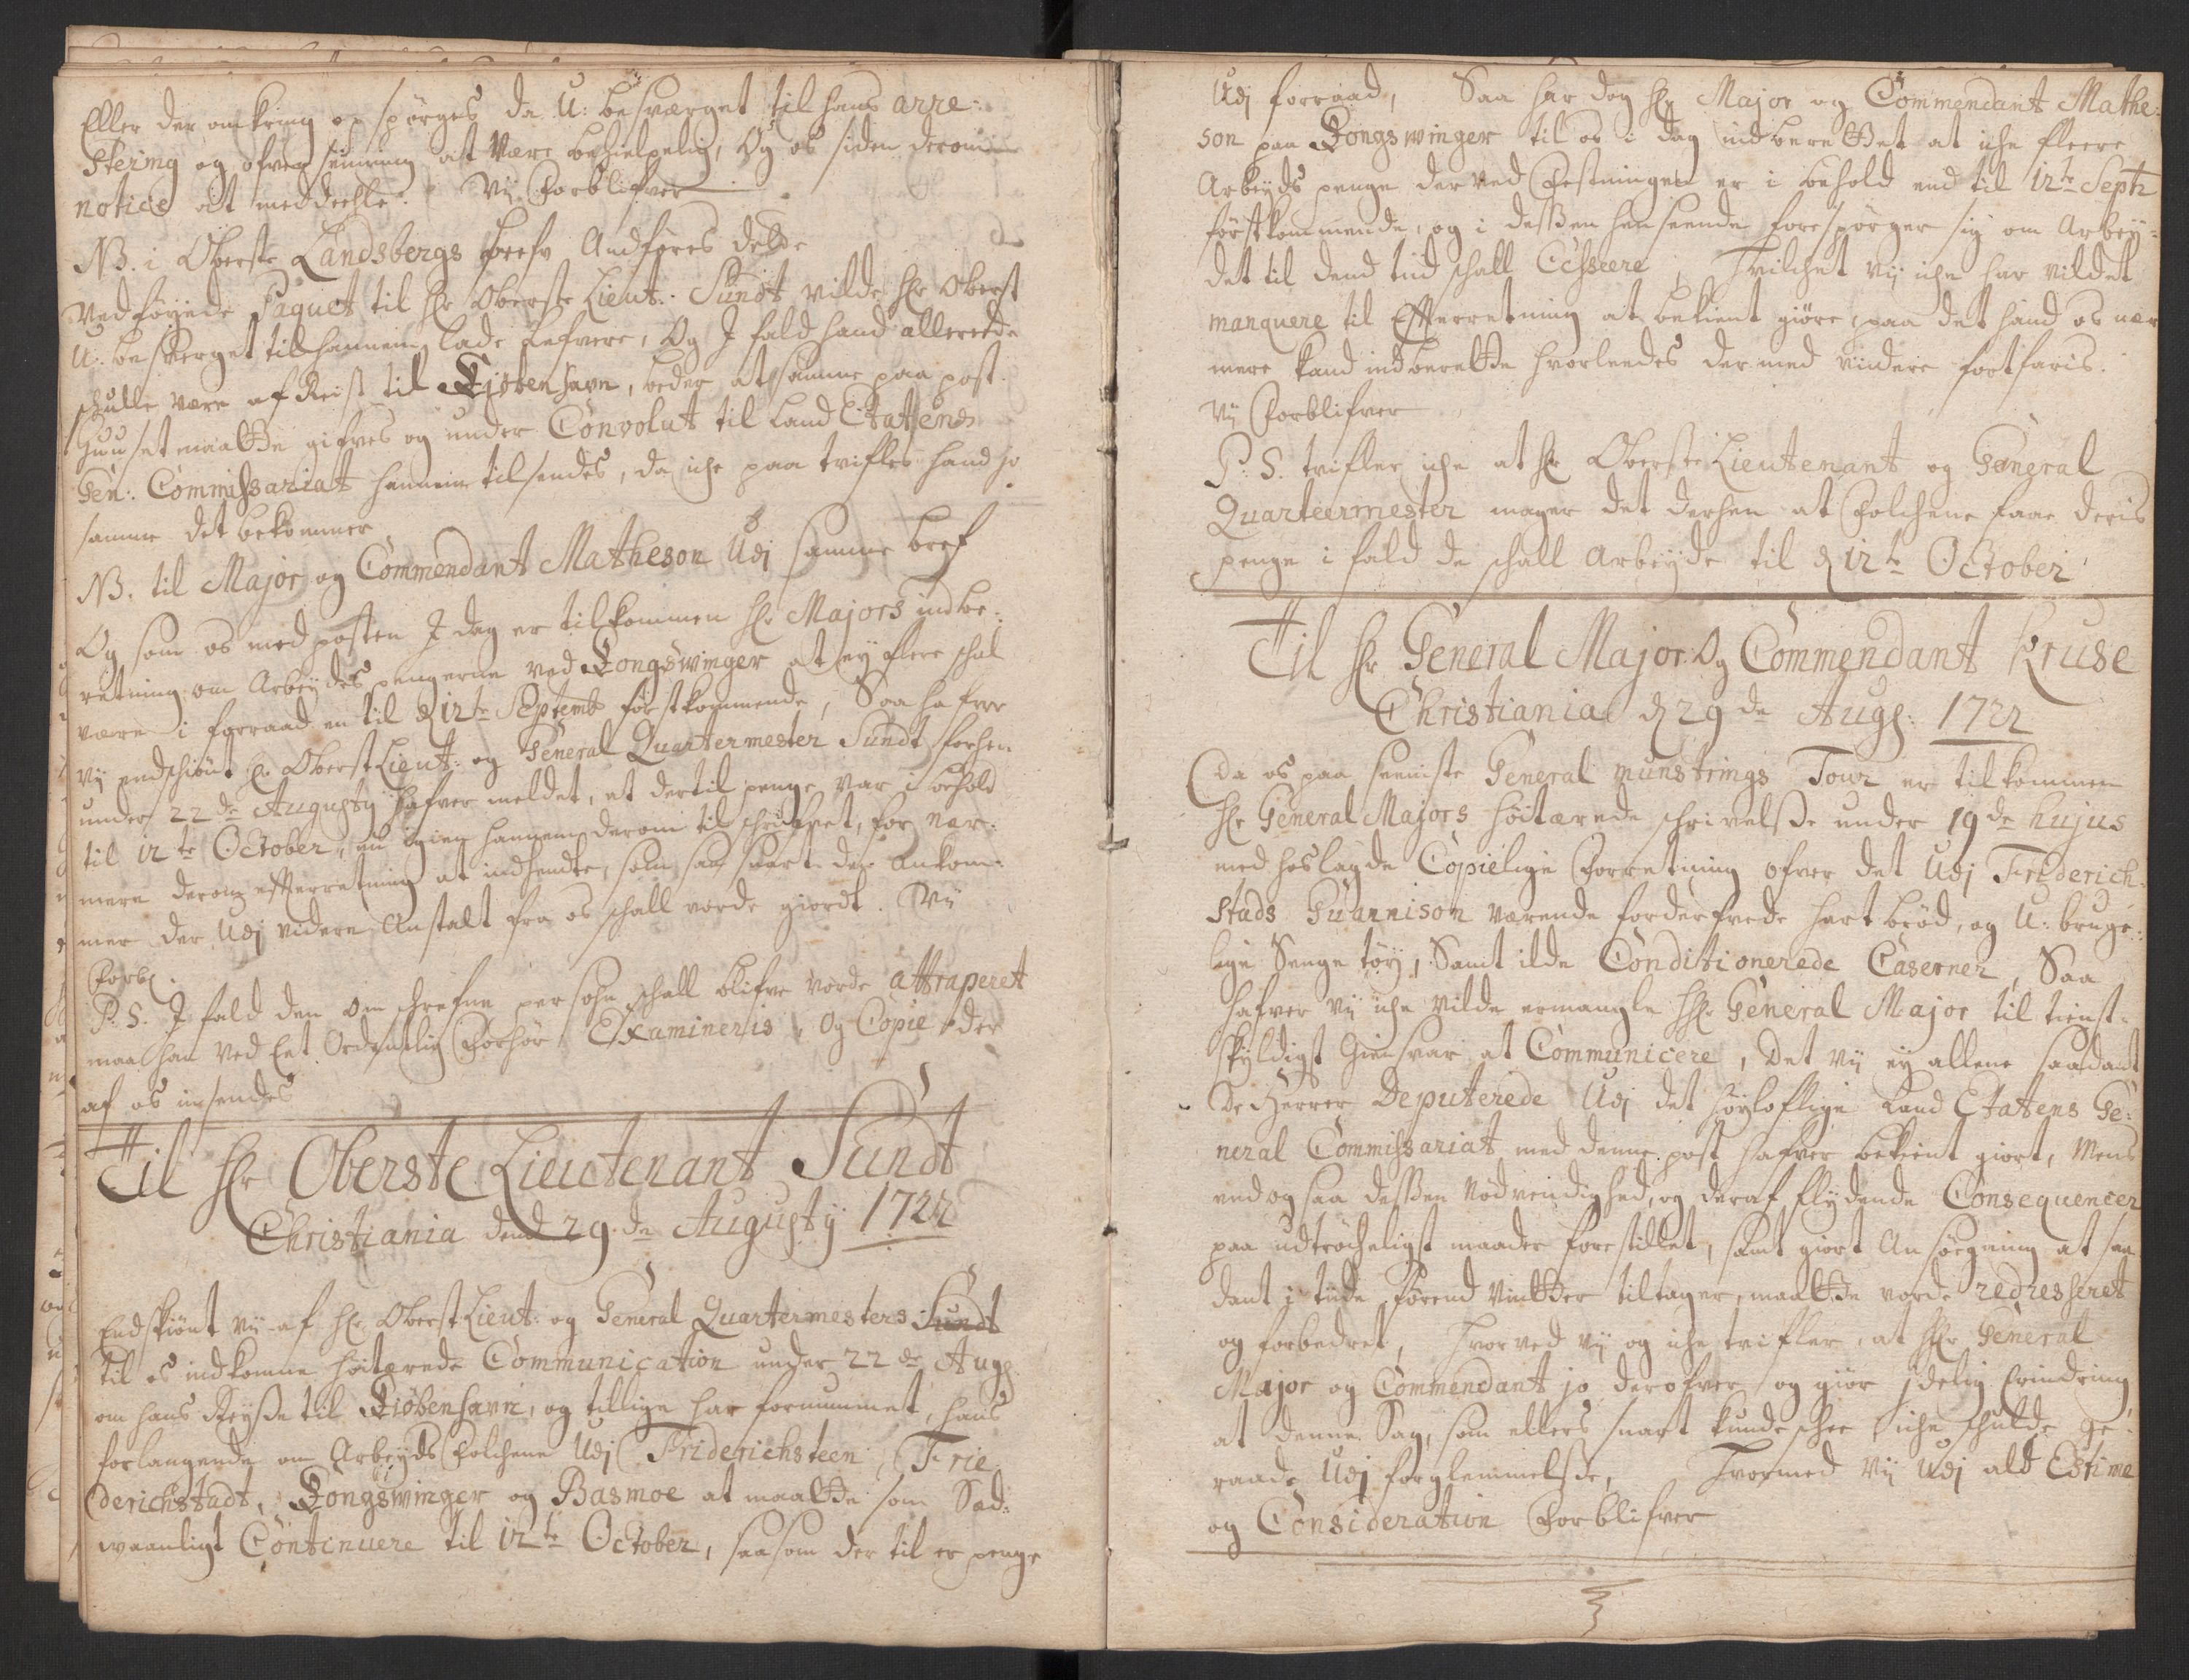 Eller der omkring op spørges da U: besværget til hans arre-
stering og ofversening at være behielpelig, Og os siden derom
notice at meddeehle. Vij Forblifver
NB. i Oberste Landsbergs bref Andføres dette
Vedføyede Paquet til Hr Oberste Lieut: Sundt vilde Hr Oberst
U: besverget til hannem lade lefvere, Og J fald hand allereede
schulle være af Reist til Kjøbenhavn, beder at samme paa post
Huuset maatte gifves og under Convolut til Land Etatens
Gen: Commissariat hannem tilsendes, da iche paa tvifles hand jo
samme det bekommer
NB. til Major og Commendant Matheson Udj samme bref
Og som os med posten J dag er tilkommen Hr Majors indbe-
retning om Arbeyds pengerne ved Kongswinger at ey flere schal
være i forraad en til d 12te Septemb førstkommende, Saa hafver
vij endschiønt Hr Oberst Lieut: og General Quartermester Sundt forhen
under 22de Augusty hafver meldet, at dertil penge var i behold
til 12te October, nu igien hannem derom til schrefvet, for nær-
mere derom efterretning at indhendte, som saa snart den ankom-
mer der Udj videre Anstalt fra os schall vorde giordt. Vij
Forbl.
P. S. J fald den om schrefne persohn schall blifve vorde attraperet
maa han ved Eet Ordentlig Forhør Examineris, Og Copie der
af os insendes
Til Hr Oberste Lieutenant Sundt
Christiania dend 29de Augusty 1722
Endskiønt vij af Hr Oberst Lieut: og General Quartermesters Sundt
til os indkomne høitærede Communication under 22de Aug
om hans Reyse til Kiøbenhavn, og tillige har fornummet, hans
forlangende om Arbeyds Folchene Udj Friderichsteen, Frie
derichstadt, Kongswinger og Basmoe at maatte som Sæd-
waanligt Continuere til 12te October, saasom der til er penge
Udj forraad, Saa har dog Hr Major og Commendant Mathe-
son paa Kongswinger til os i dag indberettet at iche fleere
Arbeyds penge der ved Festningen er i behold end til 12te Septr
førstkommende, og i dessen henseende forespørger sig om Arbey-
det til dend tiid schall Cessere, Hvilchet vij iche har vildet
manquere til Efterretning at bekient giøre, paa det hand os nær
mere kand indberette hvorleedes der med viidere fortfaris.
Vij Forblifver
P. S. tvifler iche at Hr Oberste Lieutenant og General
Quarteermester mager det derhen at Folchene faae deris
penge i fald de schall Arbeyde til d 12te October
Til Hr General Major Og Commendant Kruse
Christiania d 29de Aug: 1722
Da os paa seeniste General munstrings Tour er tilkommen
Hr General Majors høitærede schrivelsse under 19de hujus
med hoslagde Copielige Forretning ofver det Udj Friderich-
stads Guarnison værende forderfvede hart brød, og U: bruge-
lige Senge tøy, Samt ilde Conditionerede Caserner, Saa
hafver vij iche vilde ermangle Hr General Major til tienst-
skyldigst Giensvar at Communicere, Det vij ey allene saadant
De Herrer Deputerede Udj det høyloflige Land Etatens Ge-
neral Commissariat med denne post hafver bekient giort, Mens
end og saa dessen Nødvendighed, og deraf flydende Consequencer
paa udtrøcheligst maader forestillet, samt giort Ansøegning at saa
dant i tiide førend vintter tiltager, maatte vorde redresseret
og forbedret, Hvorved vij og iche tvifler, at Hr General
Major og Commendant jo derofver og giør jdelig Erindring
at denne Sag, som ellers snart kunde schee iche schulde ge-
raade Udj forglemmelsse, Hvormed Vij Udj ald Estime
og Consideration Forblifver